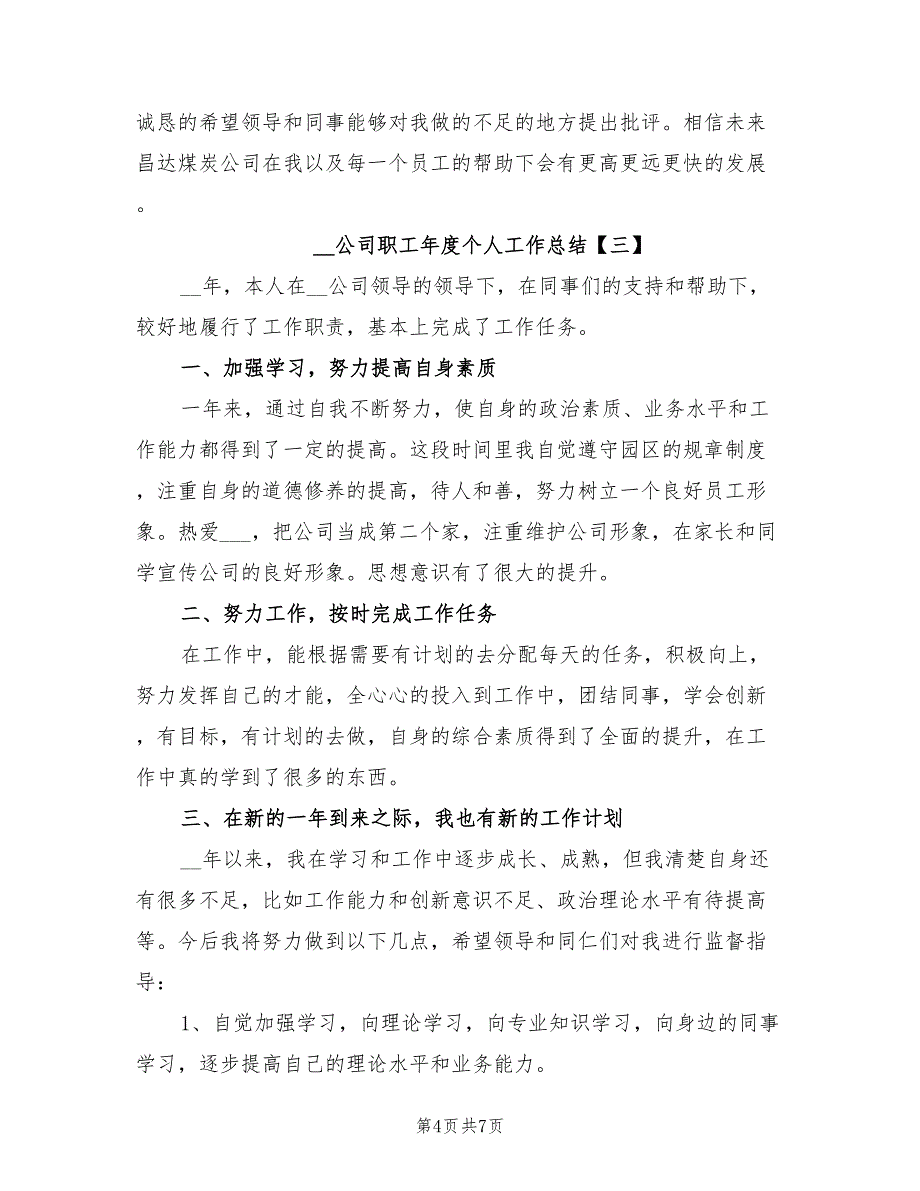 诚恳的希望领导和同事能够对我做的不足的地方提出批评。相信未来
昌达煤炭公司在我以及每一个员工的帮助下会有更高更远更快的发展
。
__公司职工年度个人工作总结【三】
__年，本人在__公司领导的领导下，在同事们的支持和帮助下，
较好地履行了工作职责，基本上完成了工作任务。
一、加强学习，努力提高自身素质
一年来，通过自我不断努力，使自身的政治素质、业务水平和工
作能力都得到了一定的提高。这段时间里我自觉遵守园区的规章制度
，注重自身的道德修养的提高，待人和善，努力树立一个良好员工形
象。热爱___，把公司当成第二个家，注重维护公司形象，在家长和同
学宣传公司的良好形象。思想意识有了很大的提升。
二、努力工作，按时完成工作任务
在工作中，能根据需要有计划的去分配每天的任务，积极向上，
努力发挥自己的才能，全心心的投入到工作中，团结同事，学会创新
，有目标，有计划的去做，自身的综合素质得到了全面的提升，在工
作中真的学到了很多的东西。
三、在新的一年到来之际，我也有新的工作计划
__年以来，我在学习和工作中逐步成长、成熟，但我清楚自身还
有很多不足，比如工作能力和创新意识不足、政治理论水平有待提高
等。今后我将努力做到以下几点，希望领导和同仁们对我进行监督指
导：
1、自觉加强学习，向理论学习，向专业知识学习，向身边的同事
学习，逐步提高自己的理论水平和业务能力。
第4页共7页